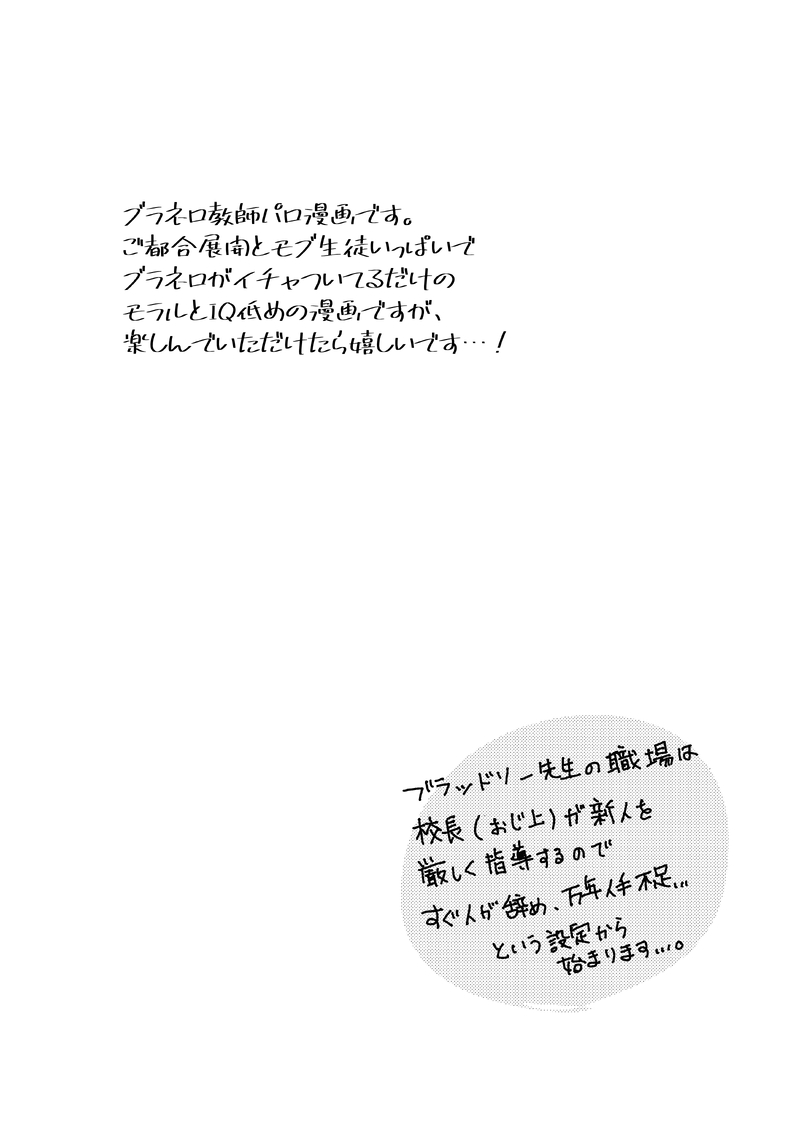 ブラネロ教師パロ漫画です。
ご都合展開とモブ生徒いっぱいで
ブラネロがイチャついてるだけの
モラルとIQ低めの漫画ですが、
楽しんでいただけたら嬉しいです…！
ブラッドリー先生の職場は
校長(おじ上)が新人を
厳しく指導するので
すぐ人が辞め、万年人手不足…
という設定から
始まります…。